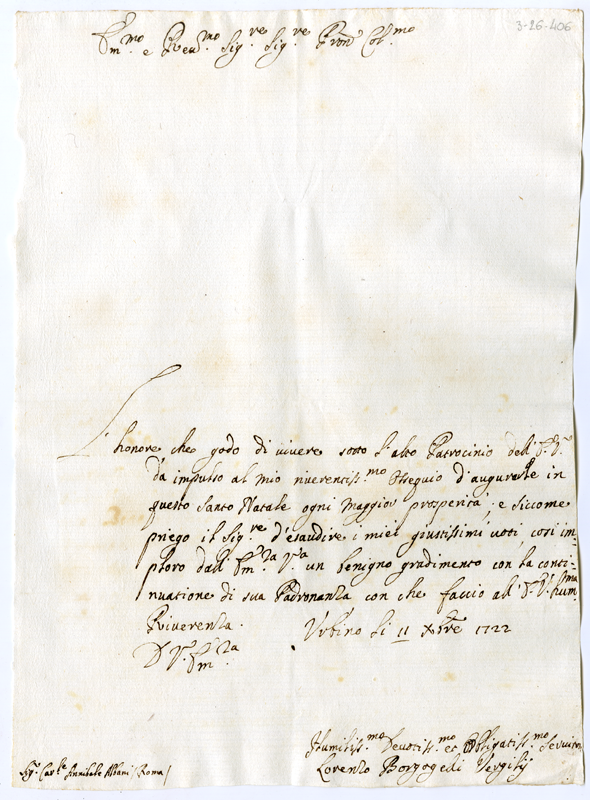 3-26-406
Em.mo e Reu.mo Sig.re Sig.re Pron Col.mo
L'honore che godo di vivere sotto l'alto Patrocinio dell'E.V.
da impulso al mio riverentiss.mo Ossequio d'augurarle in
questo Santo Natale ogni Maggior prosperità: e siccome
priego il Sig.re d'esaudire i miei giustissimi voti cosi im-
ploro dall'Em.za V.a un benigno gradimento con la conti-
nuatione di sua Padronanza con che faccio all'E.V. hum.ma
Riverenza. Urbino li 11 Xbre 1722
D V. Em.za
Humiliss.mo Devotiss.mo et Obligatiss.mo Servitor
Lorenzo Borgogelli Vergilij
Sig. Car.le Annibale Albani (Roma)